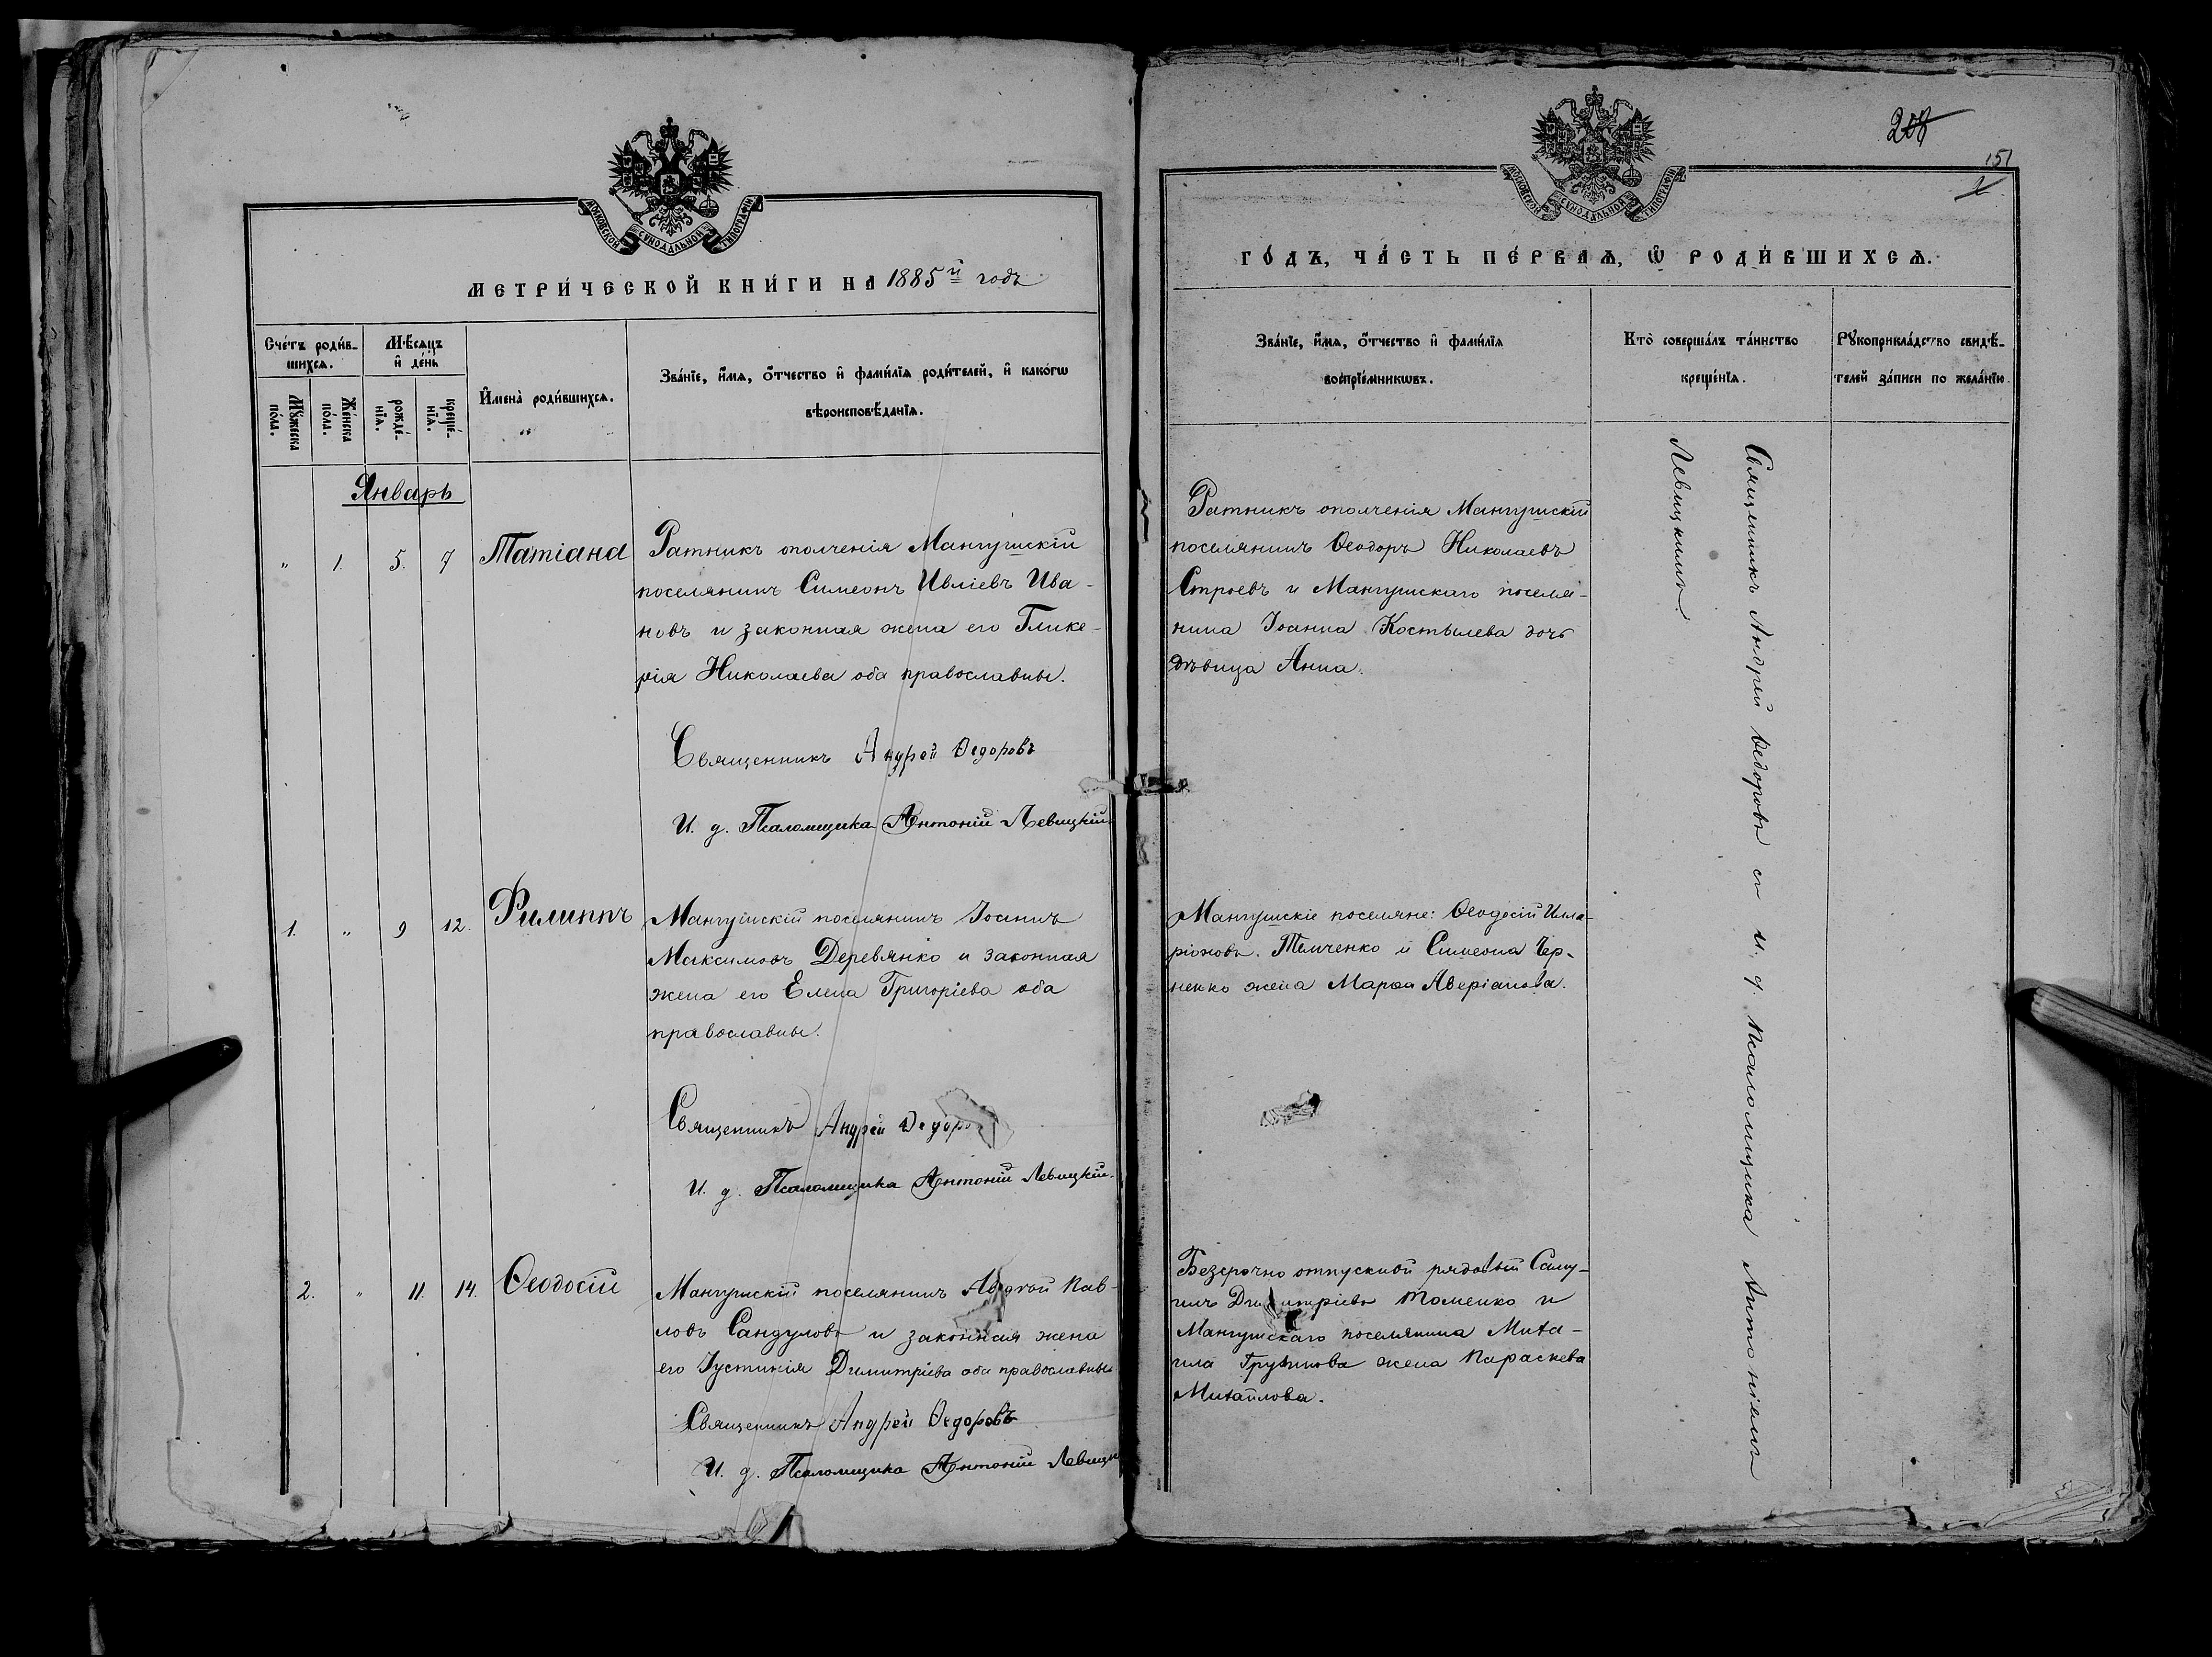 МОСКОВСКОЙ СѴНОДАЛЬНОЙ ТИПОГРАФІИ
МЕТРИ́ЧЕСКОЙ КНИ́ГИ НА 1885й годъ
Сче́тъ роди́в-
шихсѧ.
Мѣ́сѧцъ
и҆ де́нь
Мꙋ́жеска
по́ла.
Же́нска
по́ла.
рожде́-
нїѧ.
креще́-
нїѧ.
И҆мена̀ роди́вшихсѧ.
Зва́нїе, и҆́мѧ, ѻ҆́тчество и҆ фами́лїѧ роди́телей, и҆ како́гѡ
вѣроисповѣ́данїѧ.
Январь
„ 1. 5. 7 Татіана
Ратникъ ополченія Мангушскій
поселянинъ Симеонъ Ивліевъ Ива-
новъ и законная жена его Глике-
рія Николаева оба православны.
Священникъ Андрей Ѳедоровъ
И. д. Псаломщика Антоній Левицкій.
1. „ 9 12. Филиппъ
Мангушскій поселянинъ Іоаннъ
Максимовъ Деревянко и законная
жена его Елена Григоріева оба
православны.
Священникъ Андрей Ѳедоро
И. д. Псаломщика Антоній Левицкій.
2. „ 11. 14. Ѳеодосій
Мангушскій поселянинъ Пав-
ловъ Сандуловъ и законная жена
его Іустинія Димитріева оба православны
Священникъ Андрей Ѳедоровъ
И. д. Псаломщика Антоній Левицк
208
151
МОСКОВСКОЙ СѴНОДАЛЬНОЙ ТИПОГРАФІИ
ГО́ДЪ, ЧА́СТЬ ПЕ́РВАѦ, Ѽ РОДИ́ВШИХСѦ.
Зва́нїе, и҆́мѧ, ѻ҆́тчество и҆ фами́лїѧ
воспрїе́мникѡвъ.
Кто̀ соверша́лъ та́инство
креще́нїѧ.
Рꙋкоприкла́дство свидѣ́-
телей за́писи по жела́нїю
Ратникъ ополченія Мангушскій
поселянинъ Ѳеодоръ Николаевъ
Строевъ и Мангушскаго поселя-
нина Іоанна Костылева дочь
дѣвица Анна.
Мангушскіе поселяне: Ѳеодосій Илла-
ріоновъ Темченко и Симеона Чер-
ненко жена Марѳа Аверіанова.
Безсрочно отпускной рядовый Саму-
илъ Димитріевъ Томенко и
Мангушскаго поселянина Миха-
ила жена Параскева
Михайлова.
Священникъ Андрей Ѳедоровъ съ и. д. псаломщика Антоніемъ
Левицкимъ.